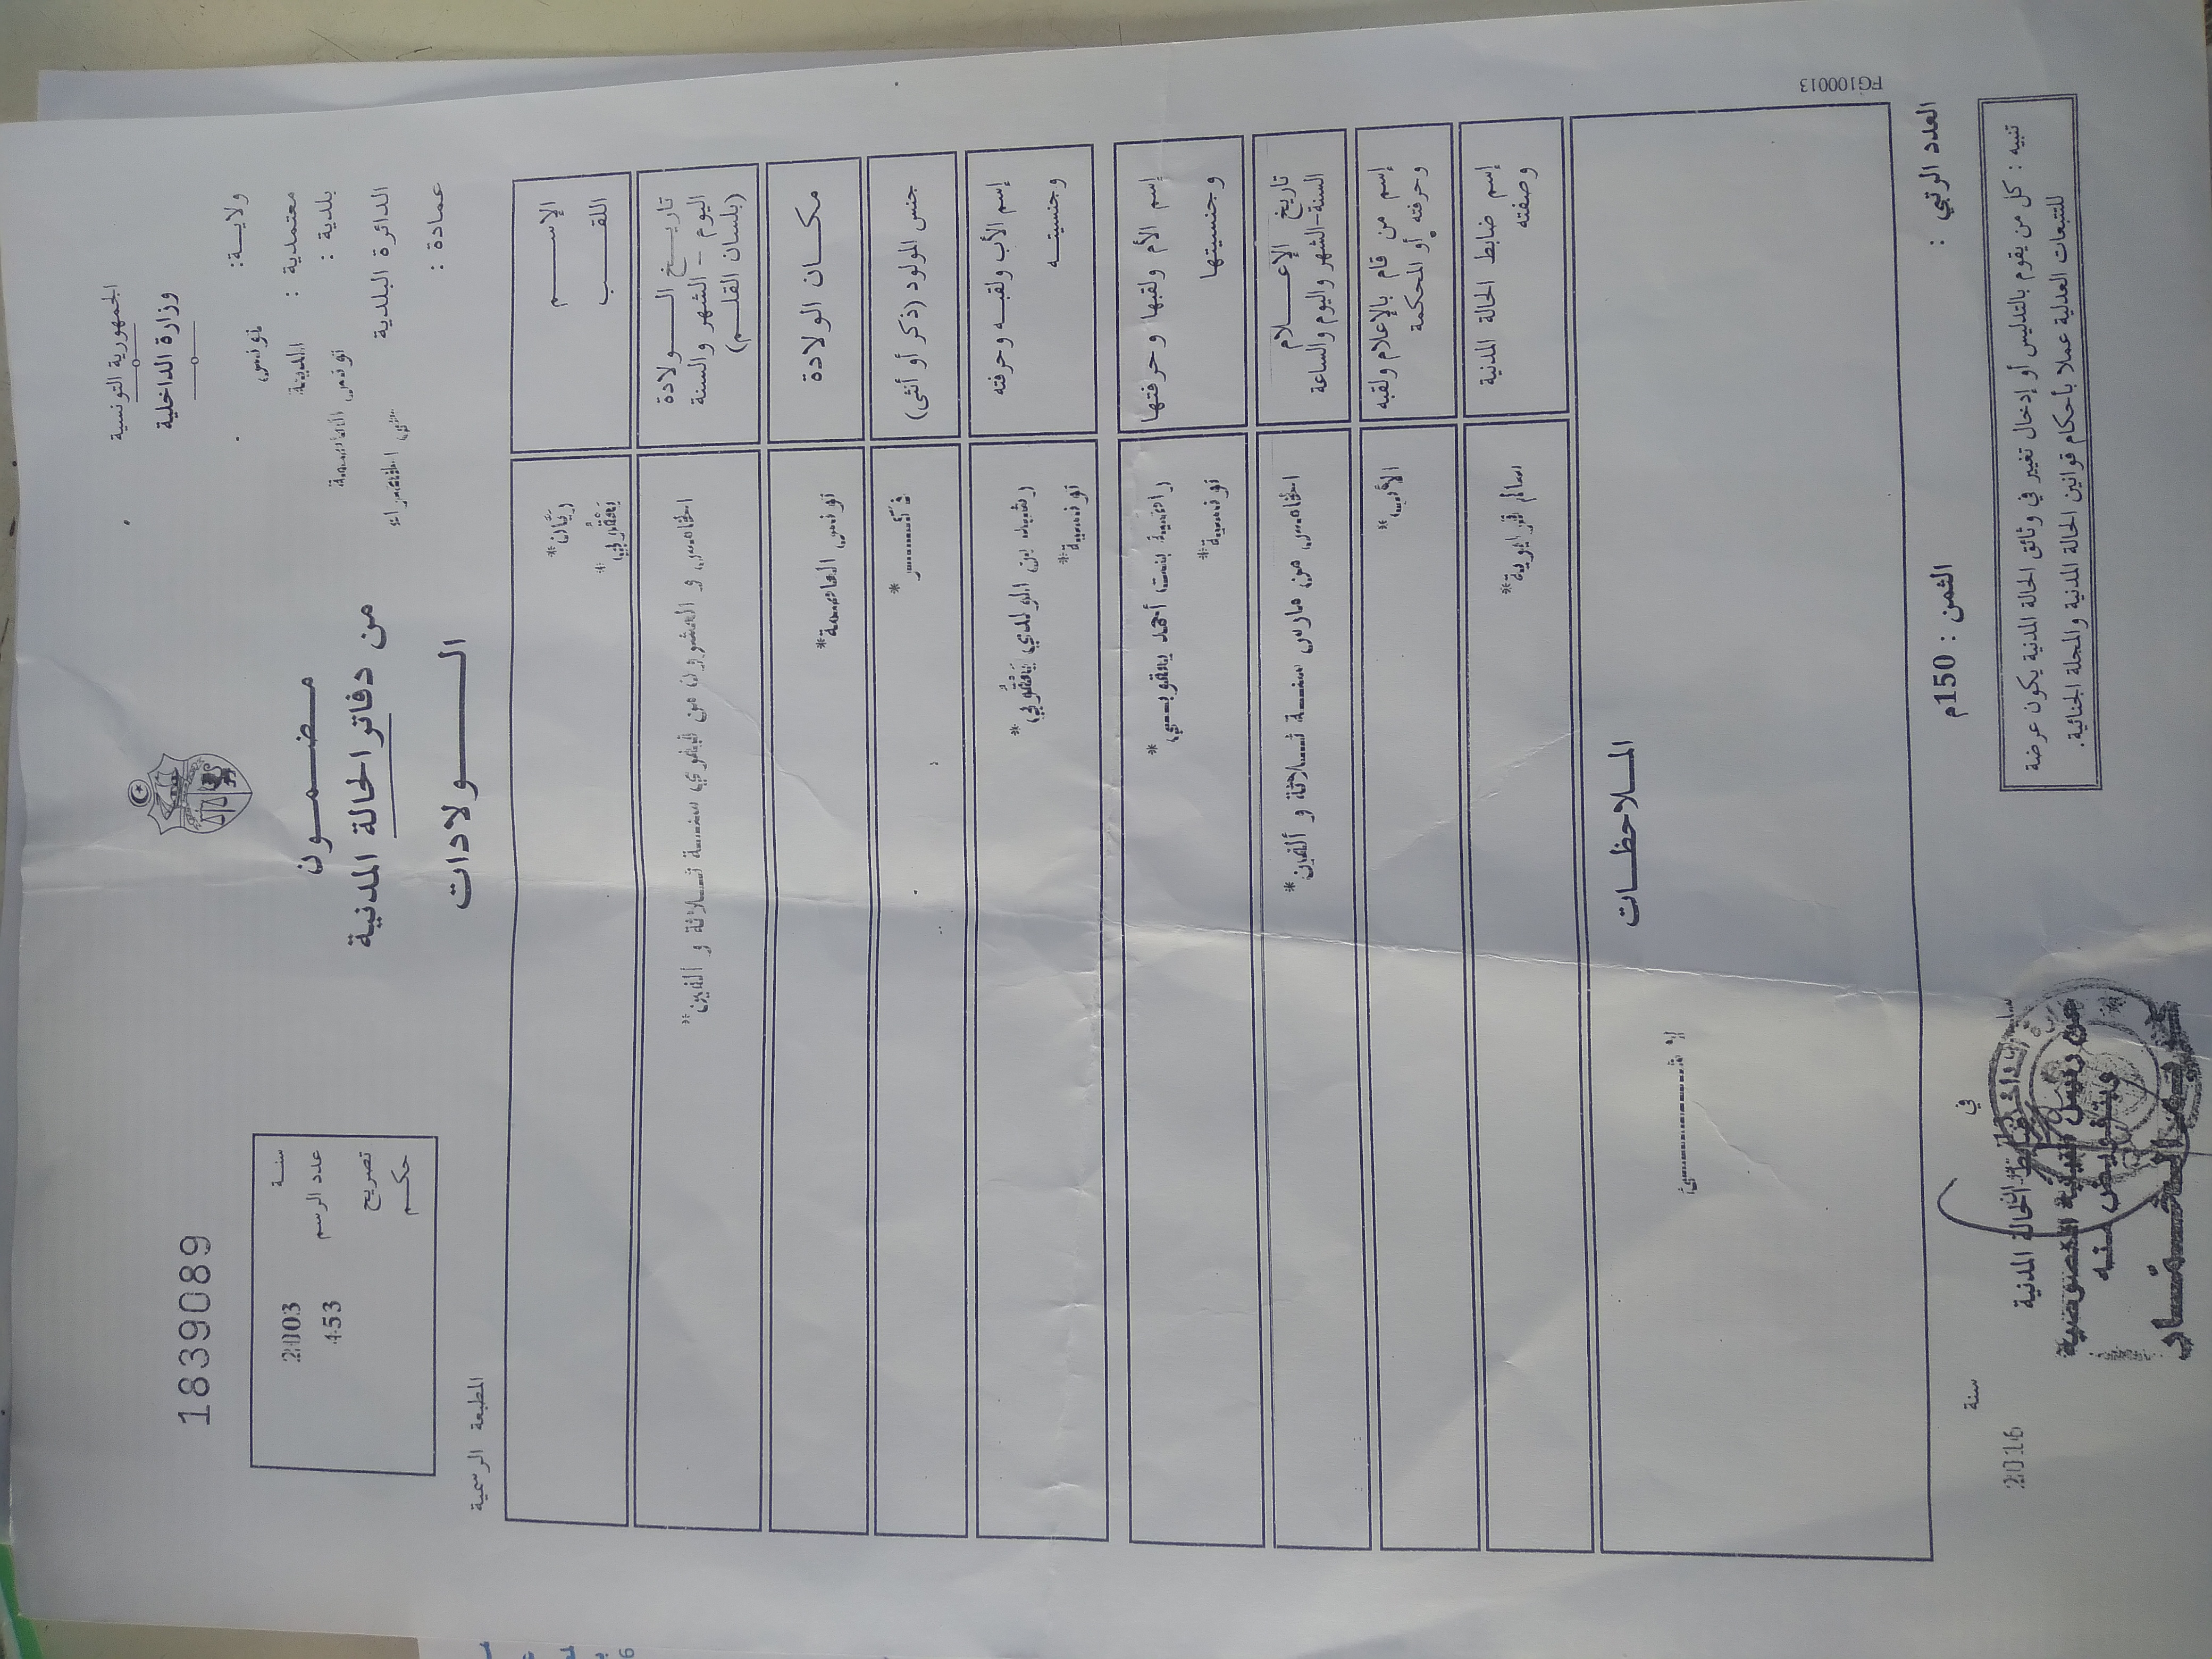 الجمهورية التونسية
وزارة الداخلية
ولاية: تونس
معتمدية : المدينة
بلدية : تونس العاصمة
الدائرة البلدية
عمادة :
مضمون
من دفاتر الحالة المدنية
الولادات
1839089
سنة 2003
عدد الرسم 453
تصريح
حكم
المطبعة الرسمية
الإسم
ريَّان*
اللقب
يَعْقُوبِي*
تاريخ الولادة
اليوم - الشهر والسنة
(بلسان القلم)
الخامس و العشرون من فيفري سنة ثلاثة و ألفين*
مكان الولادة
تونس العاصمة*
جنس المولود (ذكر أو أنثى)
ذكر*
إسم الأب ولقبه وحرفته
وجنسيته
رشيد بن المولدي يَعْقُوبِي*
تونسية*
إسم الأم ولقبها وحرفتها
وجنسيتها
راضية بنت أحمد يعقوبي*
تونسية*
تاريخ الإعلام
السنة-الشهر واليوم والساعة
الخامس من مارس سنة ثلاثة و ألفين*
إسم من قام بالإعلام ولقبه
وحرفته أو المحكمة
الأب*
إسم ضابط الحالة المدنية
وصفته
سالم
الملاحظات
لا شيء
FG100013
العدد الرتبي :
الثمن : 150م
في
سنة 2016
ضابط الحالة المدنية
عن رئيس النيابة الخصوصية
وبتفويض منه
تنبيه : كل من يقوم بالتدليس أو إدخال تغيير في وثائق الحالة المدنية يكون عرضة
للتتبعات العدلية عملا بأحكام قوانين الحالة المدنية والمجلة الجنائية.